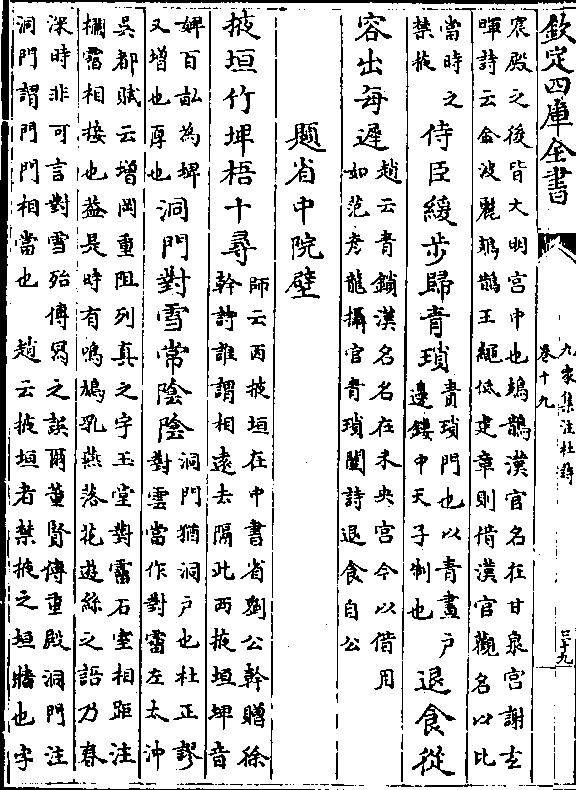 欽定四庫全書
九家集注杜詩
卷十九
三十九
宸殿之後皆大明宮中也鳷鵲漢官名在甘泉宮謝玄
暉詩云金波麗鳷鵲玉繩低建章則借漢官觀名以比
當時之
禁掖
侍臣緩步歸青瑣
青瑣門也以青畫戶
邊鏤中天子制也
退食從
容出每遲
趙云青鎖漢名名在未央宮今以借用
如范彥龍攝官青瑣闥詩退食自公
題省中院壁
掖垣竹埤梧十尋
師云西掖垣在中書省劉公幹贈徐
幹詩誰謂相遠去隔此西掖垣埤音
婢百畝為埤
又增也厚也
洞門對雪常陰陰
洞門猶洞戶也杜正謬
對雲當作對霤左太沖
吳都賦云增岡重阻列真之宇玉堂對霤石室相距注
櫩霤相接也益是時有鳴鳩乳燕落花遊絲之語乃春
深時非可言對雪殆傅冩之誤爾董賢傳重殿洞門注
洞門謂門門相當也 趙云掖垣者禁掖之垣牆也字